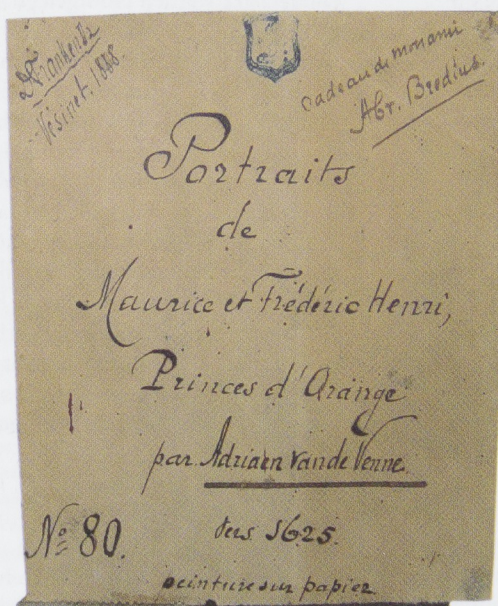 DFranken Dz
Vésinet. 1888
cadeau de mon ami
Abr. Bredius.
Portraits
de
Maurice et Frédéric Henri,
Princes d'Orange
par Adriaen van de Venne.
vers 1625.
Nº 80.
peinture sur papier